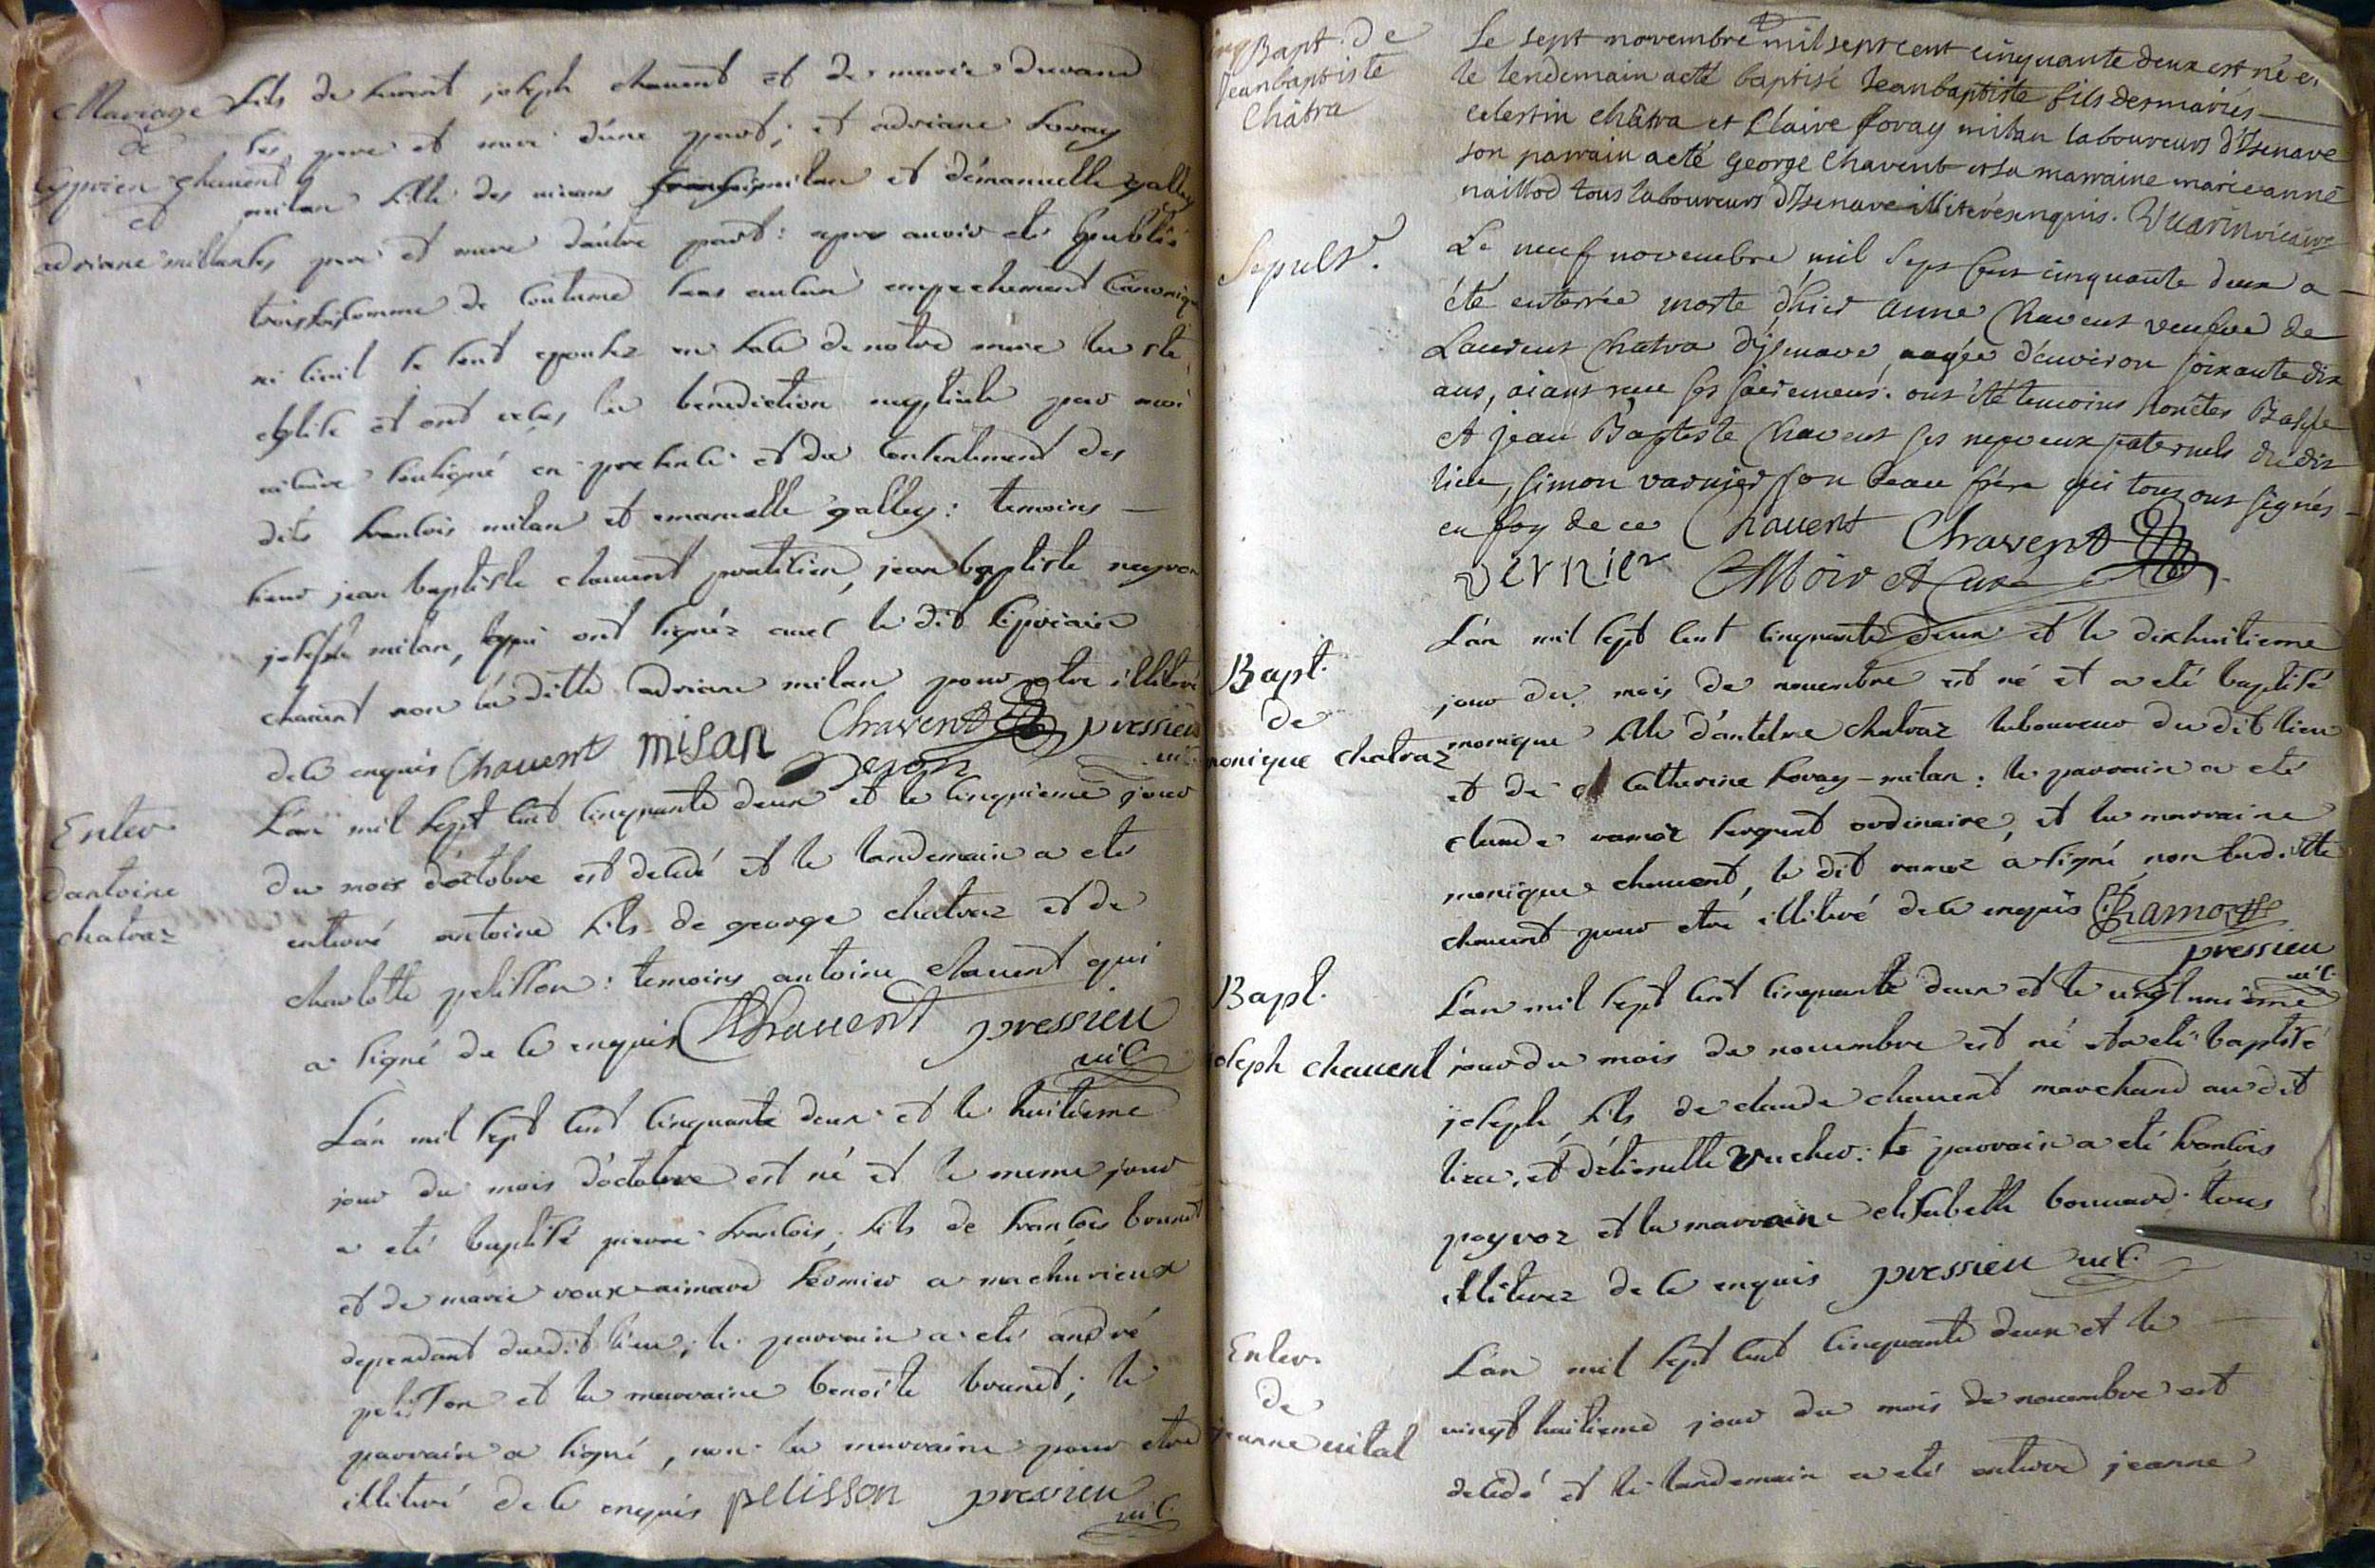 Mariage
de
Cyprien Chauent
et
adriane millan
fils de laurent joseph chauent et de marie durand
ses pere et mere d'une part; et adriane fovay
milan fille des mieans françois milan et d'émanuelle galley
ses pere et mere d'autre part: apres auoir eté publié
trois fois comme de coutume sans aucun empechement Canonique
ni ciuil se sont epousez en face de notre mere la ste
eglise et ont recus la benediction nuptiale par moi
vicaire soussigné en presence et du consentement des
dits francois milan et emanuelle galley: temoins —
sieur jean baptiste chauent praticien, jean baptiste neyron
joseph milan, qui ont signéz auec le dit siprian
chauent non la ditte adriane milan pour etre illiteré
de ce enquis Chauent misan Chavent pressieu
neron vic.
Enter
dantoine
chatraz
L'an mil sept cent cinquante deux et le cinquieme jour
du mois d'octobre est decedé et le landemain a eté
enterré antoine fils de george chatraz et de
charlotte pelisson: temoins antoine chauent qui
a signé de ce enquis AChauent pressieu
vic.
L'an mil sept cent cinquante deux et le huitieme
jour du mois d'octobre est né et le meme jour
a eté baptisé pierre francois, fils de francois brunet
et de marie roux aimard fermier a machurieux
dependant dudit lieu; le parrain a eté andré
pelisson et la marraine benoite brunet; le
parrain a signé, non la marraine pour etre
illiteré de ce enquis pelisson pressieu
vic.
Bapt. de
Jeanbaptiste
Châtra
Le sept novembre mil sept cent cinquante deux est né et
le lendemain a eté baptisé Jeanbaptiste fils des mariés —
Celestin châtra et Claire fovay milan laboureurs d'Izenave
son parrain a eté George Chavent et sa marraine marie anne
naillod tous laboureurs d'Izenave illiterés enquis. Vuarin vicaire
Sepult.
Le neuf novembre mil sept cent cinquante deux a
été enterrée morte d'hier anne Chavent veufve de
Laurent Chatra d'jsenave aagée d'environ soixante dix
ans, aiant reçu ses sacremens. ont été temoins honêtes Balthe
et jean Baptiste Chavent ses nepveux paternels du dit
lieu, simon varnier son beau frère qui tous ont signés
en foy de ce Chauent Chavent
vernier Moiret Curé
Bapt.
de
monique chatraz
L'an mil sept cent cinquante deux et le dixhuitieme
jour du mois de nouembre est né et a eté baptisé
monique fille d'antelme chatraz laboureur du dit lieu
et de Catherine fovay-milan: le parrain a eté
claude ramoz sergent ordinaire, et la marraine
monique chauent, le dit ramoz a signé non laditte
chauent pour etre illiteré de ce enquis Ramoz
pressieu
vic.
Bapt.
joseph chauent
L'an mil sept cent cinquante deux et le vingtunieme
jour du mois de nouembre est né et a eté baptisé
joseph fils de claude chauent marchand au dit
lieu, et d'etiennette vucher: le parrain a eté francois
peyvoz et la marraine elisabeth bonnard. tous
illiterez de ce enquis pressieu vic.
Enter.
de
jeanne vital
L'an mil sept cent cinquante deux et le
vingt huitieme jour du mois de nouembre est
decedé et le landemain a eté enterré jeanne